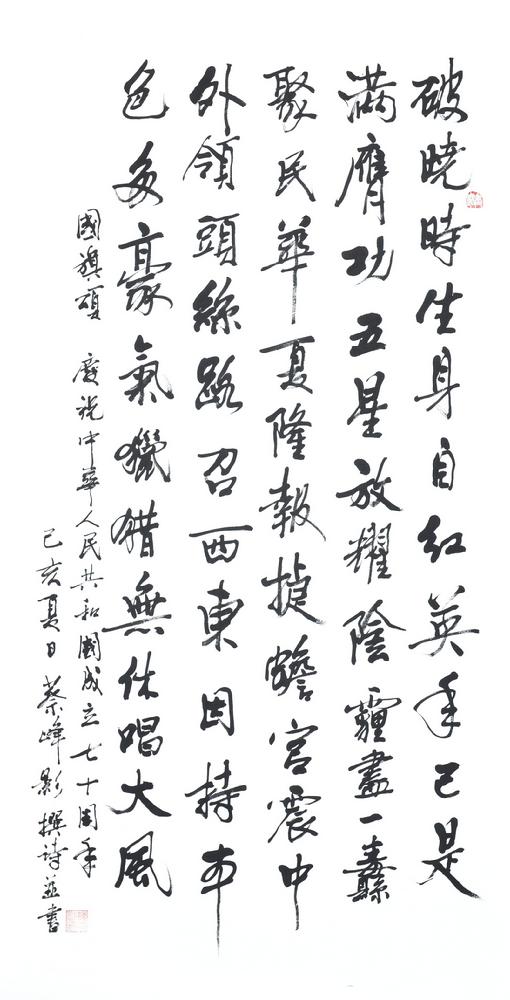 破曉時生身自紅英年已是
滿膺功五星放耀陰霾盡一纛
聚民華夏隆報捷蟾宮震中
外領頭絲路召西東因持本
色多豪氣獵獵無休唱大風
國旗頌 慶祝中華人民共和國成立七十周年
己亥夏日 蔡峰影撰詩並書